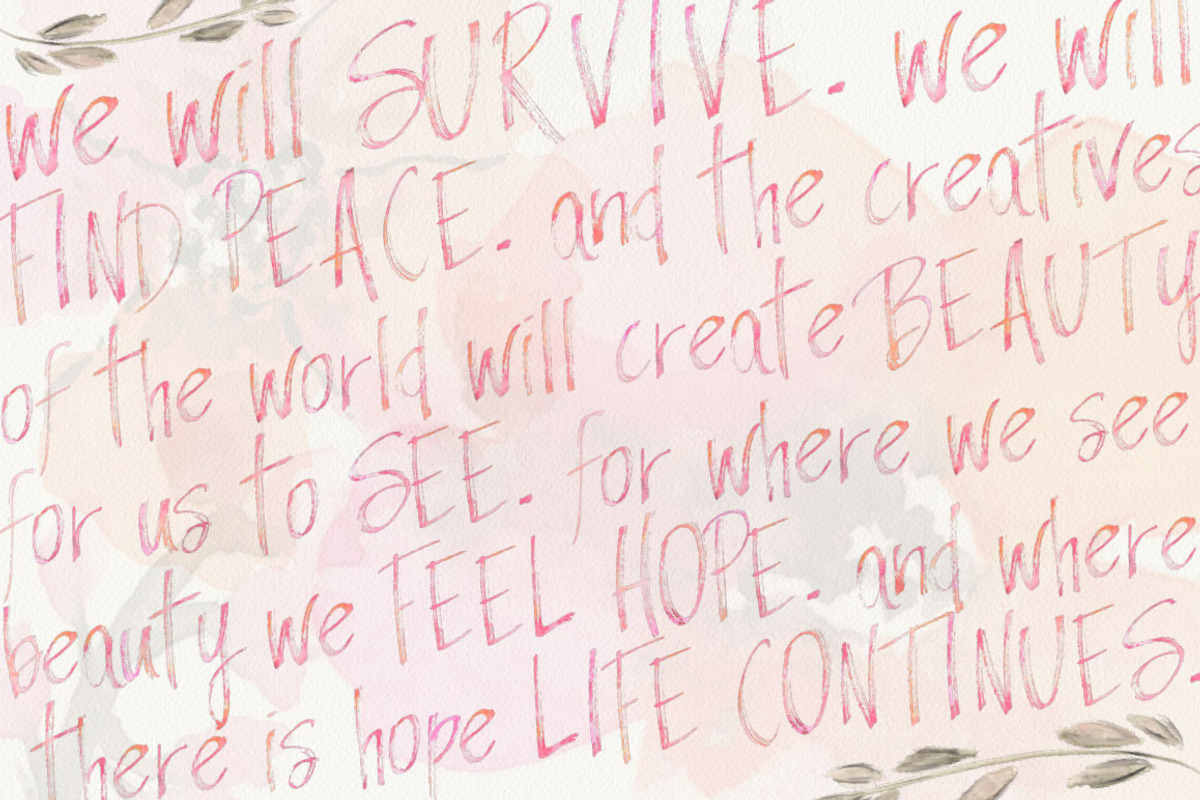 we will SURVIVE. we will
FIND PEACE. and the creatives
of the world will create BEAUTY
for us to SEE. for where we see
beauty we FEEL HOPE. and where
there is hope LIFE CONTINUES.